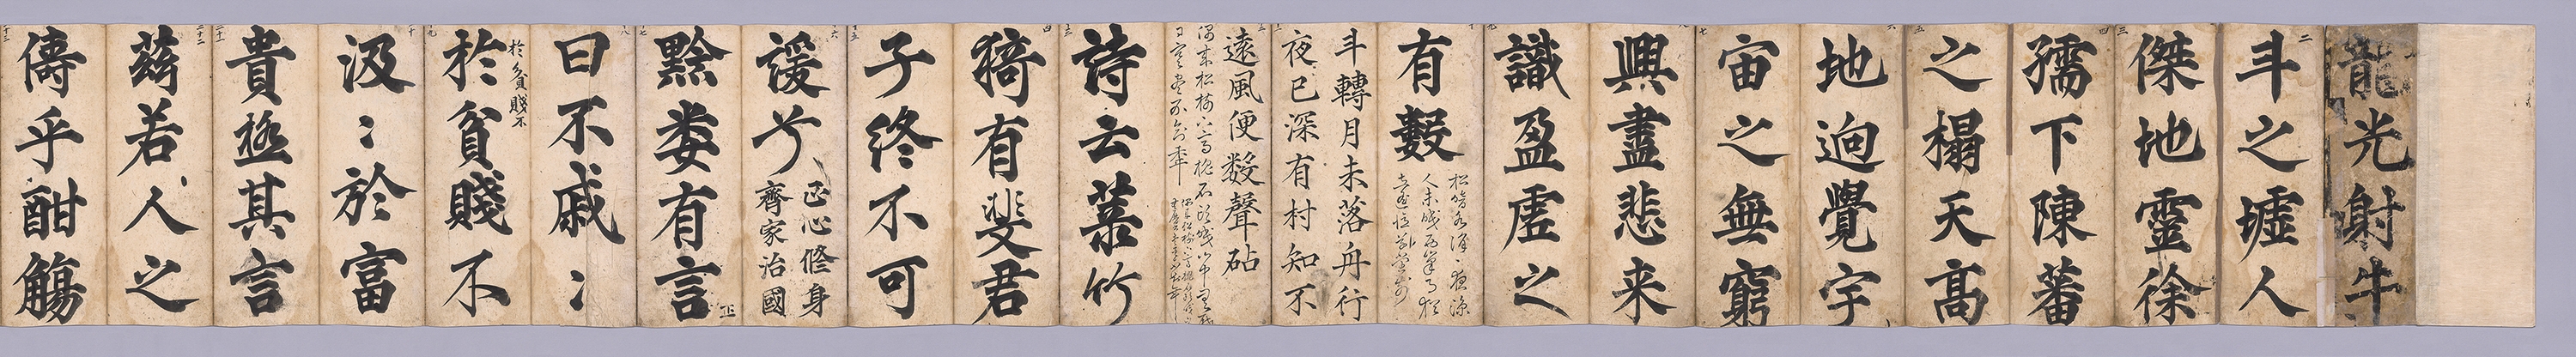 龍光射牛
斗之墟人
傑地靈徐
孺下陳蕃
之榻天高
地逈覺宇
宙之無窮
興盡悲来
識盈虛之
有數
松暗水涓〻夜涼
人未眠西峯月猶
在遙憶草堂前
斗轉月未落舟行
夜已深有村知不
遠風便数聲砧
詩云菉竹
猗有斐君
子終不可
諼兮
正心修身
齊家治國
黔婁有言
曰不戚〻
於貧賤不
於貧賤不
汲〻於富
貴極其言
玆若人之
儔乎酣觴